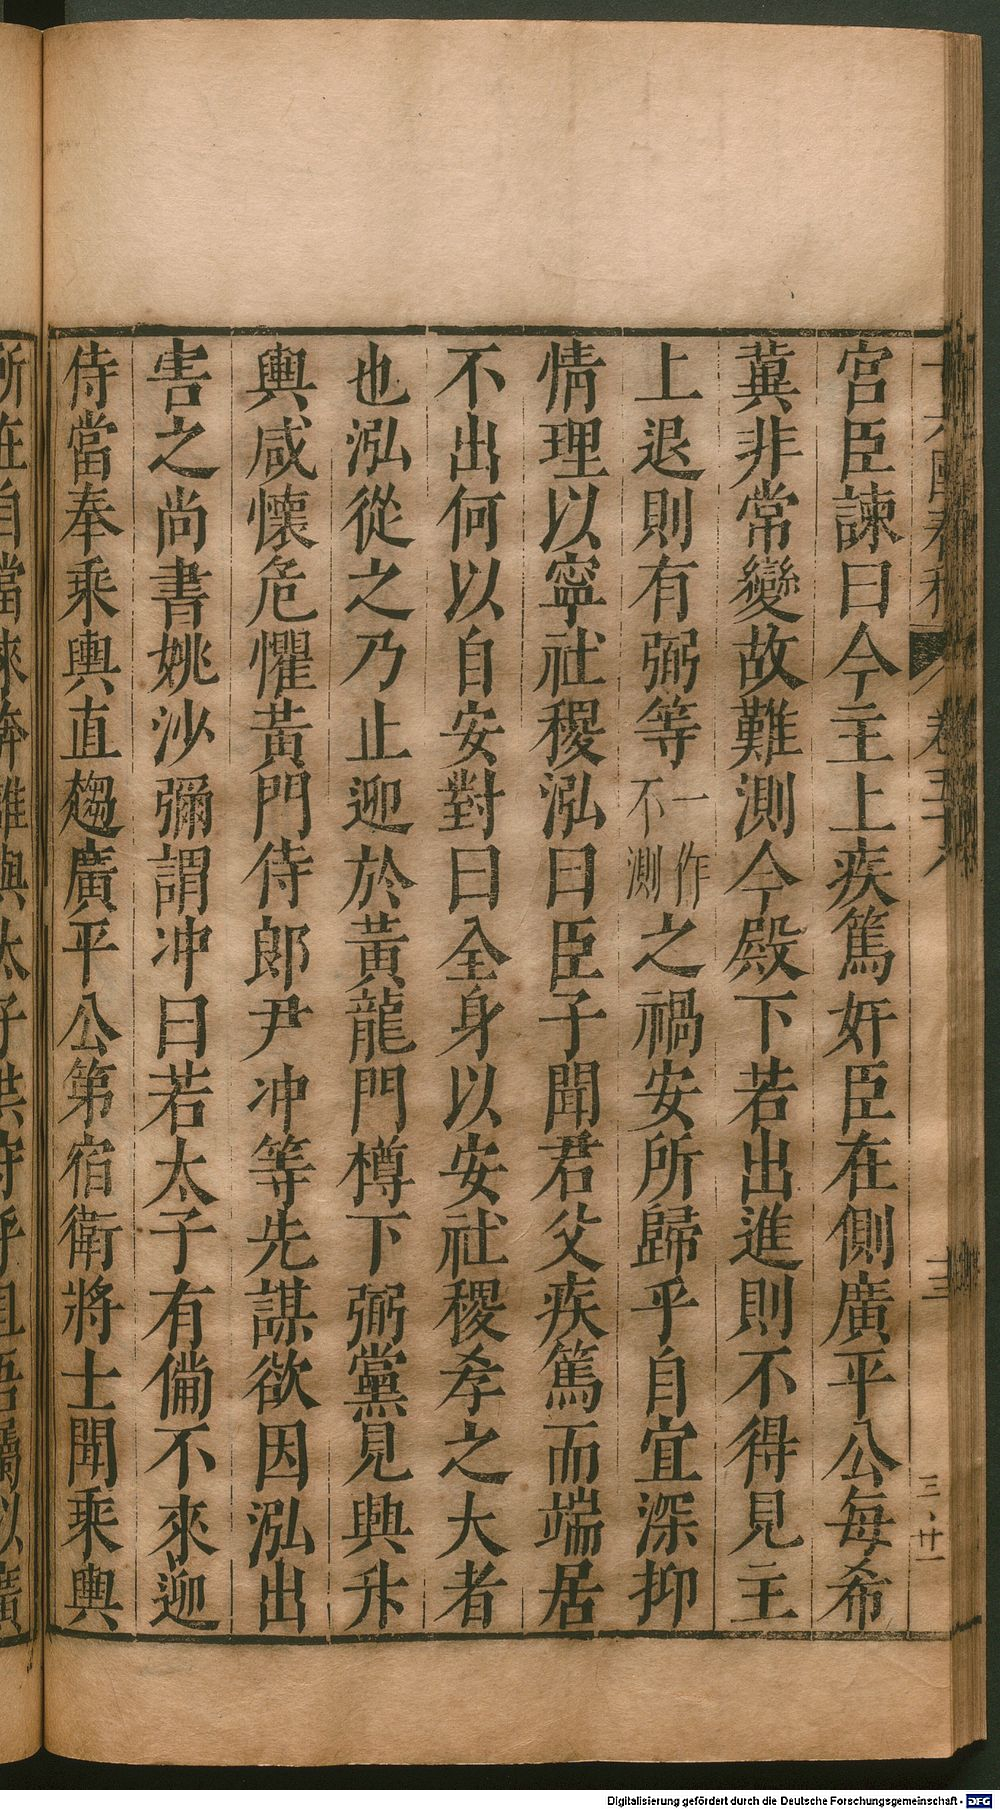 宮臣諫曰今主上疾篤奸臣在側廣平公每希
冀非常變故難測今殿下若出進則不得見主
上退則有弼等一作不測之禍安所歸乎自宜深抑
情理以寧社稷泓曰臣子聞君父疾篤而端居
不出何以自安對曰全身以安社稷孝之大者
也泓從之乃止迎於黃龍門樽下弼黨見興升
輿咸懷危懼黃門侍郎尹冲等先謀欲因泓出
害之尚書姚沙彌謂冲曰若太子有備不來迎
侍當奉乘輿直趨廣平公第宿衛將士聞乘輿
所在自當來奔誰與太子共守乎且吾屬以廣
三·廿一
Digitalisierung gefördert durch die Deutsche Forschungsgemeinschaft - DFG